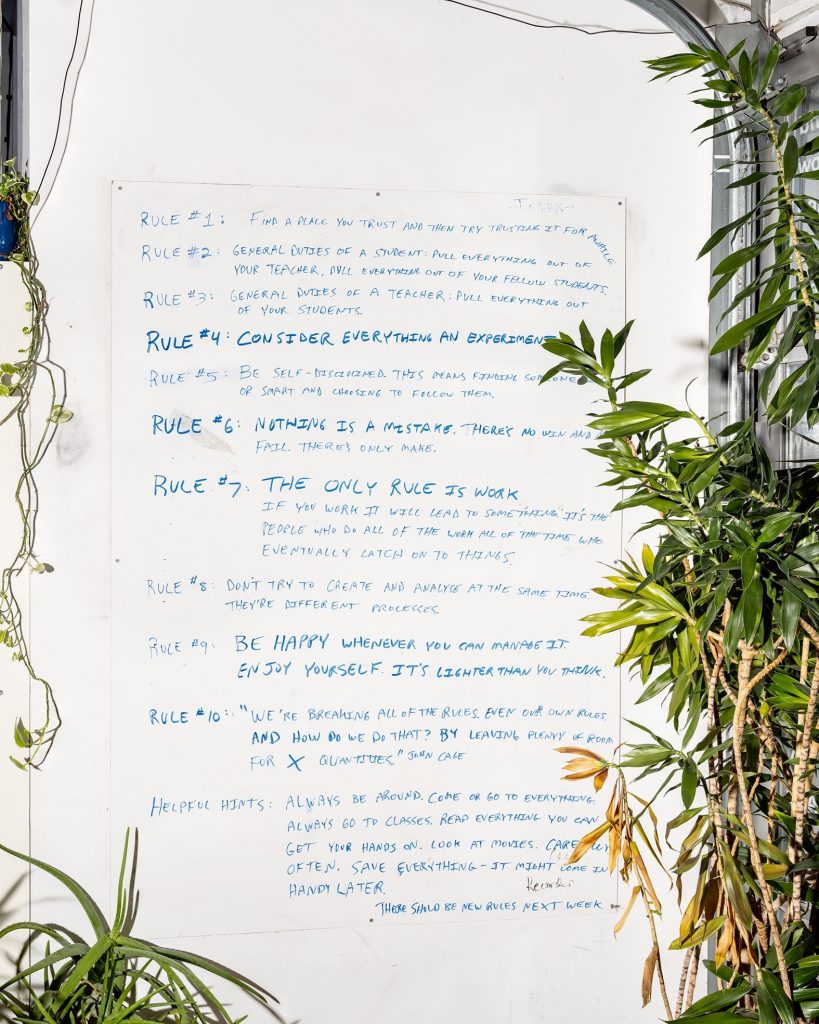 RULE #1: FIND A PLACE YOU TRUST AND THEN TRY TRUSTING IT FOR AWHILE
RULE #2: GENERAL DUTIES OF A STUDENT: PULL EVERYTHING OUT OF
YOUR TEACHER. PULL EVERYTHING OUT OF YOUR FELLOW STUDENTS.
RULE #3: GENERAL DUTIES OF A TEACHER: PULL EVERYTHING OUT
OF YOUR STUDENTS.
RULE #4: CONSIDER EVERYTHING AN EXPERIMENT
RULE #5: BE SELF-DISCIPLINED. THIS MEANS FINDING SOMEONE
OR SMART AND CHOOSING TO FOLLOW THEM.
RULE #6: NOTHING IS A MISTAKE. THERE'S NO WIN AND
FAIL. THERE'S ONLY MAKE.
RULE #7: THE ONLY RULE IS WORK
IF YOU WORK IT WILL LEAD TO SOMETHING. IT'S THE
PEOPLE WHO DO ALL OF THE WORK ALL OF THE TIME WHO
EVENTUALLY LATCH ON TO THINGS.
RULE #8: DON'T TRY TO CREATE AND ANALYSE AT THE SAME TIME
THEY'RE DIFFERENT PROCESSES.
RULE #9: BE HAPPY WHENEVER YOU CAN MANAGE IT.
ENJOY YOURSELF. IT'S LIGHTER THAN YOU THINK.
RULE #10: "WE'RE BREAKING ALL OF THE RULES. EVEN OUR OWN RULES.
AND HOW DO WE DO THAT? BY LEAVING PLENTY OF ROOM
FOR X QUANTITIES." JOHN CAGE
HELPFUL HINTS: ALWAYS BE AROUND. COME OR GO TO EVERYTHING.
ALWAYS GO TO CLASSES. READ EVERYTHING YOU CAN
GET YOUR HANDS ON. LOOK AT MOVIES. CAREFULLY
OFTEN. SAVE EVERYTHING - IT MIGHT COME IN
HANDY LATER.
THERE SHOLD BE NEW RULES NEXT WEEK.